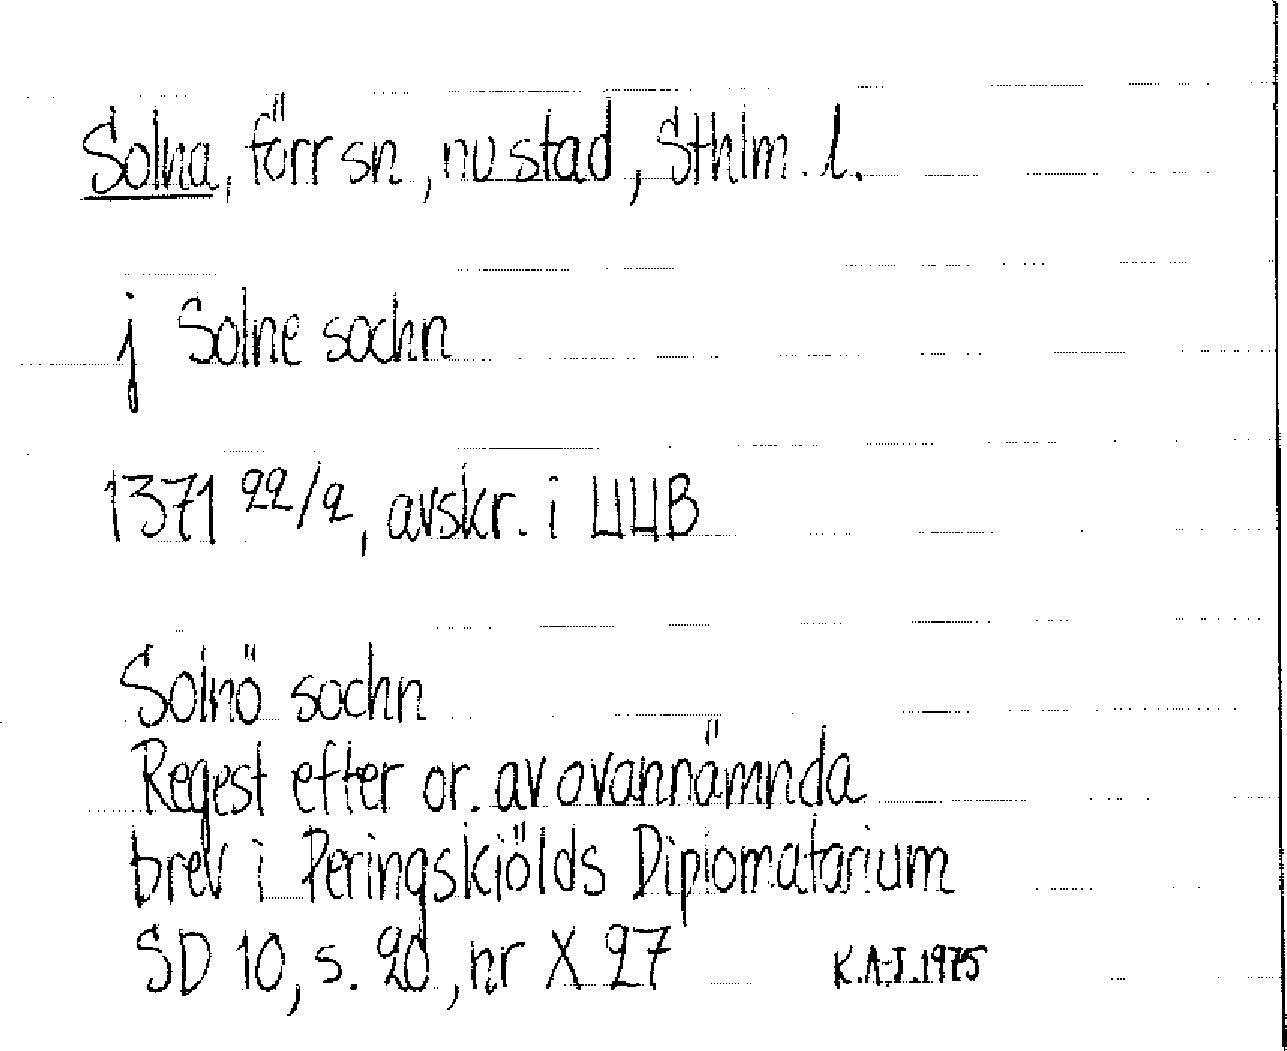 Solna, förr sn, nu stad, Sthlm. l.
j Solne sochn
1371 22/2, avskr. i UUB
Solnö sochn
Regest efter or. av ovannämnda
brev i Peringskiölds Diplomatarium
SD 10, s. 20, nr X 27
K.A-I.1975